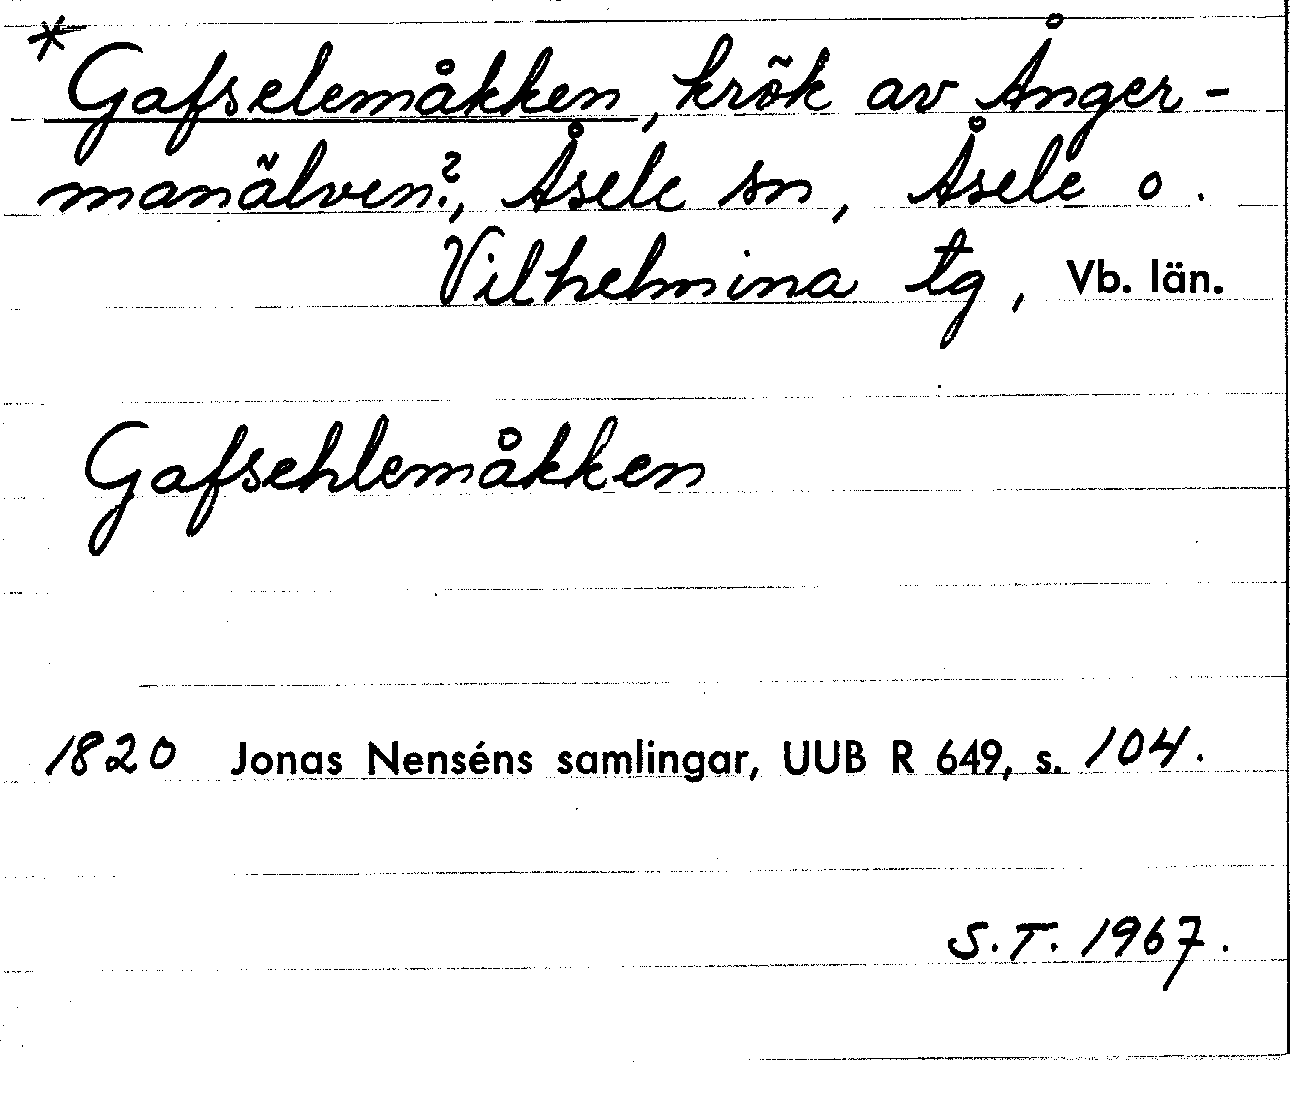 *Gafselemåkken, krök av Ånger-
manälven?, Åsele sn, Åsele o.
Vilhelmina tg, Vb. län.
Gafsehlemåkken
1820 Jonas Nenséns samlingar, UUB R 649, s. 104.
S.T. 1967.